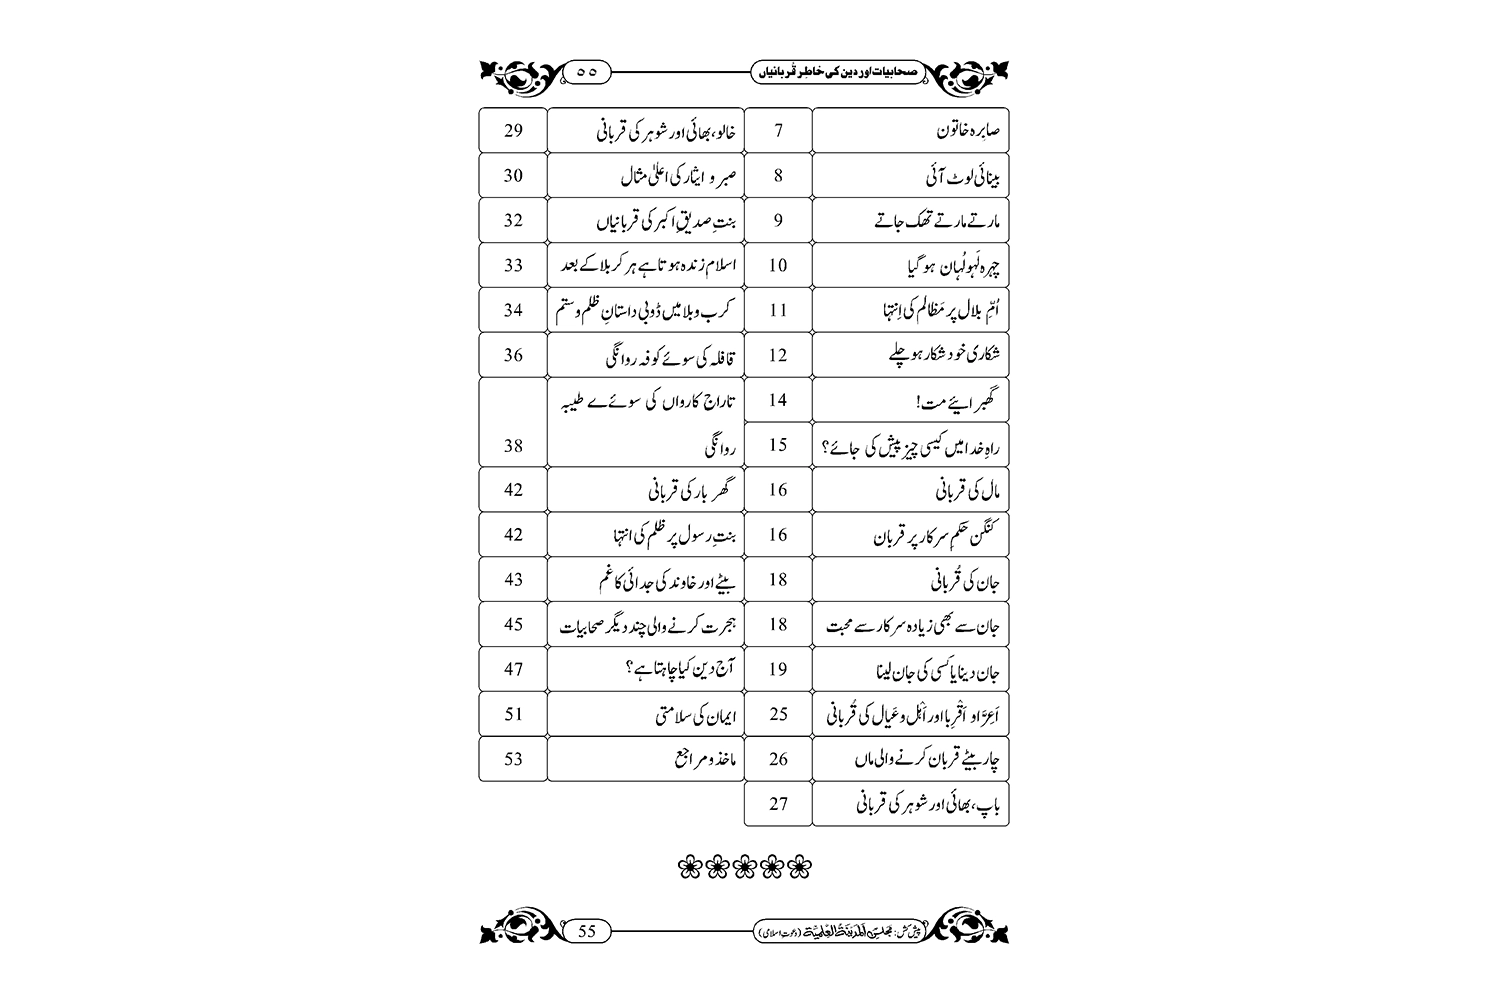 صحابیات اور دین کی خاطر قُربانیاں ۵۵
صابِرہ خاتون 7 خالو، بھائی اور شوہر کی قربانی 29
بینائی لوٹ آئی 8 صبر و ایثار کی اعلیٰ مثال 30
مارتے مارتے تھک جاتے 9 بنتِ صدیقِ اکبر کی قربانیاں 32
چہرہ لَہولُہان ہوگیا 10 اسلام زندہ ہوتا ہے ہر کربلا کے بعد 33
اُمِّ بلال پر مَظالم کی اِنتہا 11 کرب و بلا میں ڈوبی داستانِ ظلم و ستم 34
شکاری خود شکار ہو چلے 12 قافلہ کی سوئے کوفہ روانگی 36
گھبرائیے مت! 14 تاراج کارواں کی سوئے طیبہ
راہِ خدا میں کیسی چیز پیش کی جائے؟ 15 روانگی 38
مال کی قربانی 16 گھر بار کی قربانی 42
کنگن حکمِ سرکار پر قربان 16 بنتِ رسول پر ظلم کی انتہا 42
جان کی قُربانی 18 بیٹے اور خاوند کی جدائی کا غم 43
جان سے بھی زیادہ سرکار سے محبت 18 ہجرت کرنے والی چند دیگر صحابیات 45
جان دینا یا کسی کی جان لینا 19 آج دین کیا چاہتا ہے؟ 47
اَعِزَّا و اَقْرِبا اور اَہْل و عَیال کی قُربانی 25 ایمان کی سلامتی 51
چار بیٹے قربان کرنے والی ماں 26 ماخذ و مراجع 53
باپ، بھائی اور شوہر کی قربانی 27
پیش کش: مجلس المدینۃ العلمیۃ (دعوتِ اسلامی) 55